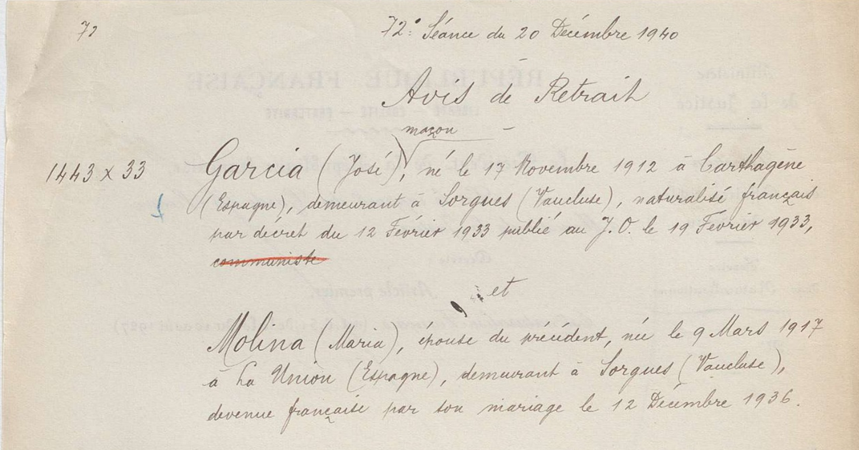 72
72e Séance du 20 Décembre 1940
Avis de Retrait
maçon
1443 x 33 Garcia (José), né le 17 Novembre 1912 à Carthagène
(Espagne), demeurant à Sorgues (Vaucluse), naturalisé français
par décret du 12 Février 1933 publié au J.O. le 19 Février 1933,
communiste
et
Molina (Maria), épouse du précédent, née le 9 Mars 1917
à La Union (Espagne), demeurant à Sorgues (Vaucluse),
devenue française par son mariage le 12 Décembre 1936.